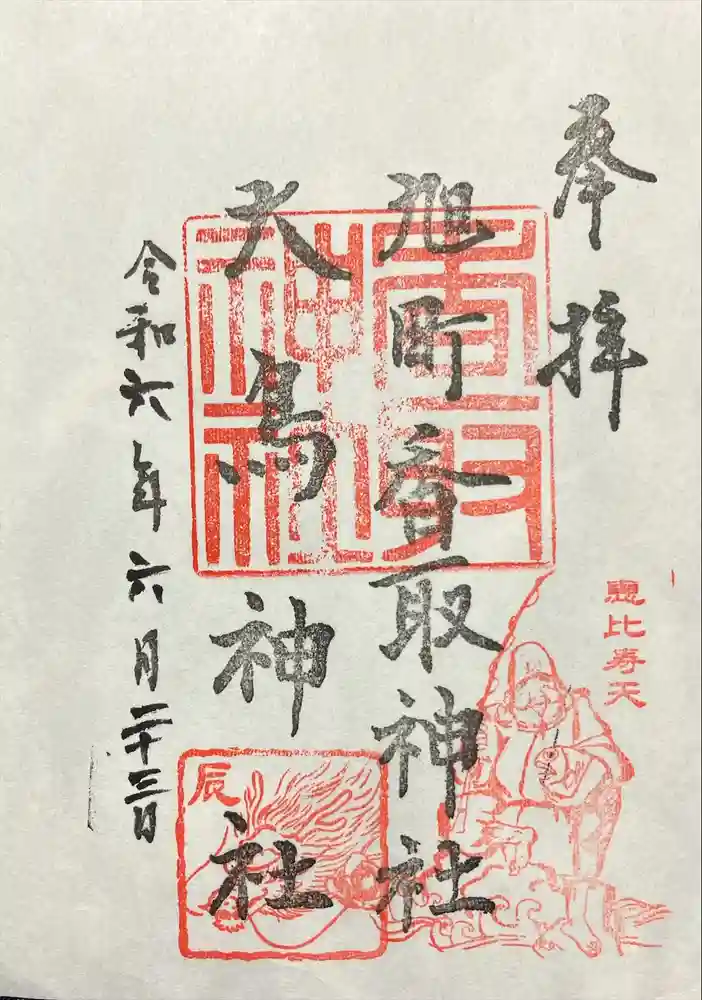 奉拝
旭町香取神社
大鳥神社
令和六年六月二十三日
香取神社
恵比寿天
辰